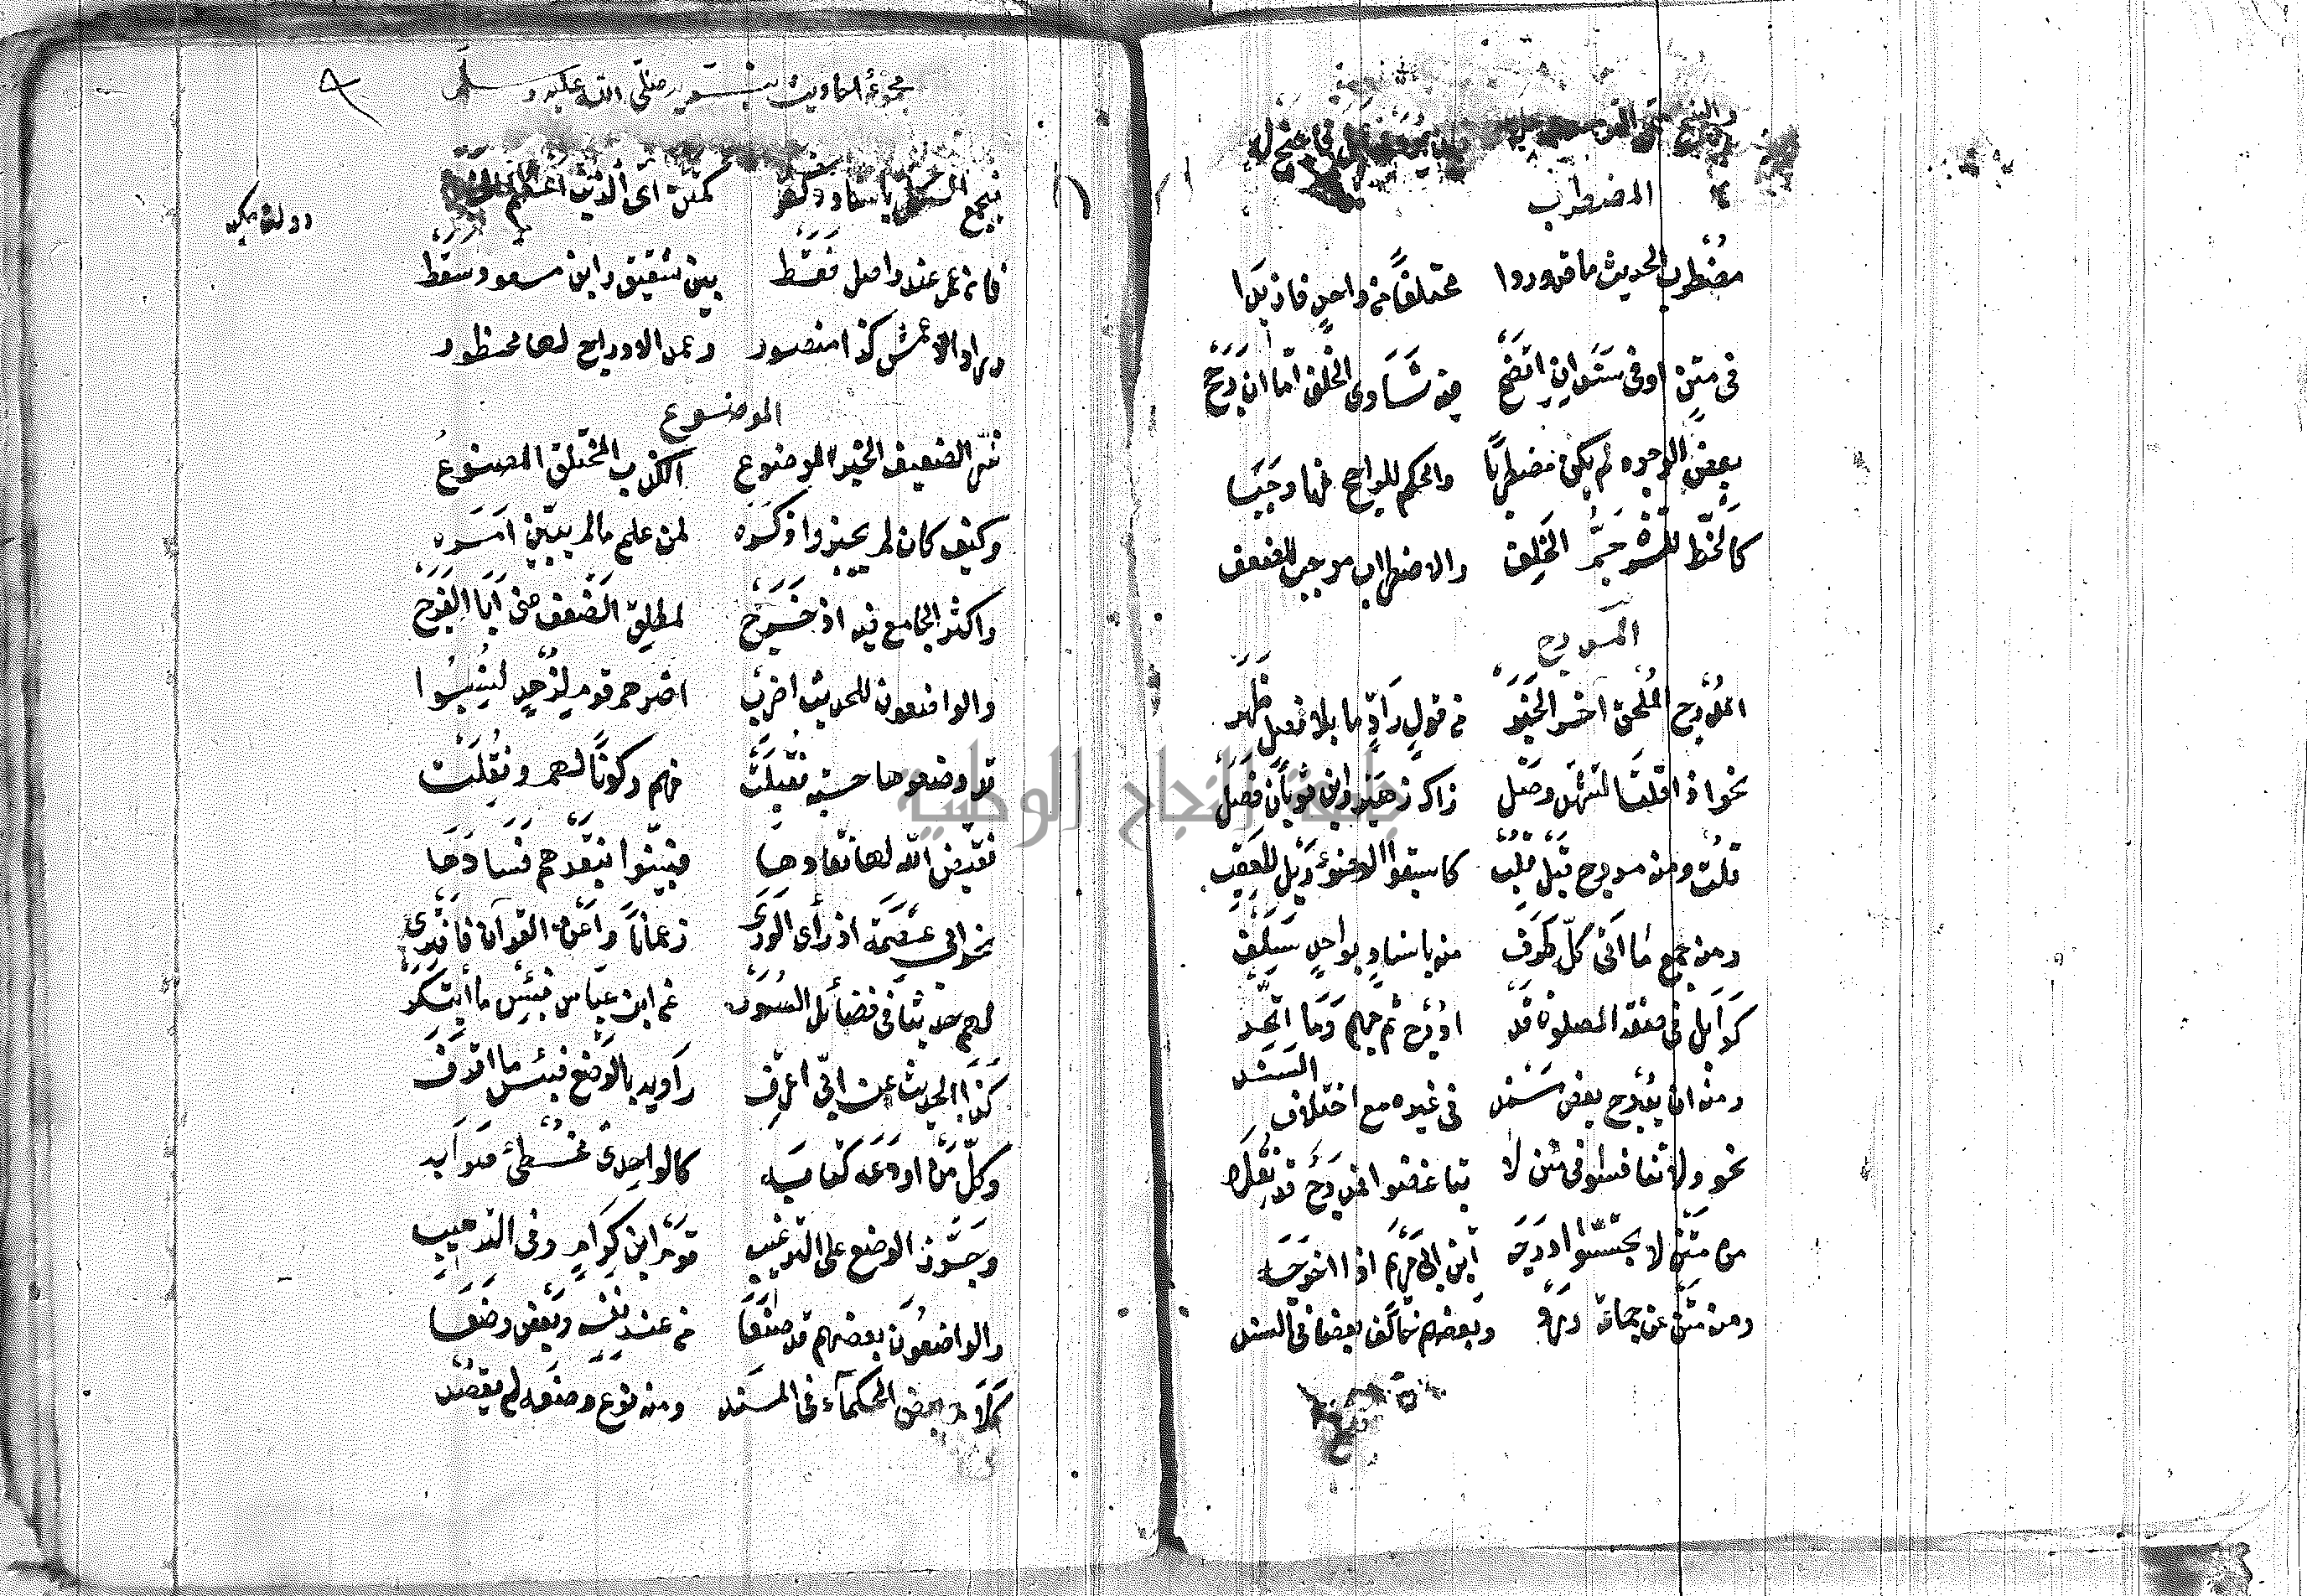 المضطرب
مضطرب الحديث ما قد وردا مختلفًا من واحدٍ فازيدا
في متنٍ او في سندٍ ان اتضح فيه تساوي الخلف اما ان رجح
بعض الوجوه لم يكن مضطربًا والحكم للراجح منها وجبا
كالخط للسترة جمّ الخلف والاضطراب موجب للضعف
المدرج
المدرج الملحق آخر الخبر من قول راوٍ ما بلا فصل ظهر
نحو اذا قلت التشهد وصل ذاك زهير وابن ثوبان فصل
قلت ومنه مدرج قبل قلب كاسبغوا الوضوء ويل للعقب
ومنه جمع ما اتى كل طرف منه باسناد بواحدٍ سلف
كوائل في صفة الصلوة قد ادرج ثم جئتهم وما اتحد
ومنه ان يدرج بعض مسند في غيره مع اختلاف السند
نحو ولا تنافسوا في متن لا تباغضوا فمدرج قد نقلا
من متن لا تجسسوا ادرجه ابن ابي مريم اذ اخرجه
ومنه متن عن جماعة ورد وبعضهم خالف بعضا في السند
مجموعة احاديث صلّى الله عليه وسلّم
٩
فيجمع الكل باسناد ذكر كمتن اي الذنب اعظم الخبر
دولت مكيه
فان عمرا عند واصل فقط بين شقيق وابن مسعود سقط
وزاد الاعمش كذا منصور وعمد الادراج لها محظور
الموضوع
شر الضعيف الخبر الموضوع الكذب المختلق المصنوع
وكيف كان لم يجيزوا ذكره لمن علم ما لم يبيّن امره
واكثر الجامع فيه اذ خرج لمطلق الضعف عنى ابا الفرج
والواضعون للحديث اضرب اضرهم قوم لزهدٍ نسبوا
قد وضعوها حسبة فقبلت منهم ركونًا لهم ونقلت
فقيّض الله لها نقادها فبيّنوا بنقدهم فسادها
نحو ابي عصمة اذ رأى الورى زعما نأوا عن القرآن فافترى
لهم حديثا في فضائل السور عن ابن عباس فبئس ما ابتكر
كذا الحديث عن ابيّ اعترف راويه بالوضع فبئس ما اقترف
وكلّ من اودعه كتابه كالواحدي مخطئ صوابه
وجوّز الوضع على الترغيب قوم ابن كرام وفي الترهيب
والواضعون بعضهم قد صنعا من عند نفسه وبعض وضعا
كلام بعض الحكماء في المسند ومنه نوع وضعه لم يقصد
جامعة النجاح الوطنية